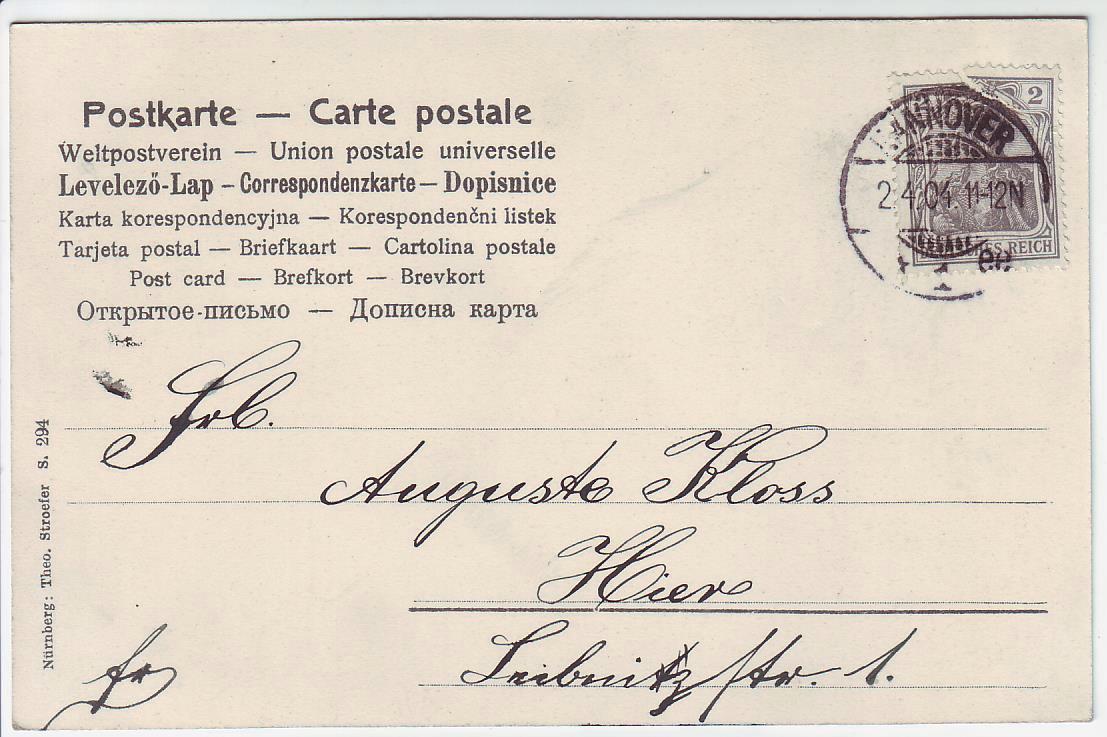 Postkarte — Carte postale
Weltpostverein — Union postale universelle
Levelező-Lap – Correspondenzkarte – Dopisnice
Karta korespondencyjna — Korespondenčni listek
Tarjeta postal — Briefkaart — Cartolina postale
Post card — Brefkort — Brevkort
Открытое-письмо — Дописна карта
2
HANNOVER
2.4.04.11-12N
REICH
1
Frl.
Auguste Kloss
Hier
Leibnitzstr. 1.
fr
Nürnberg: Theo. Stroefer S. 294